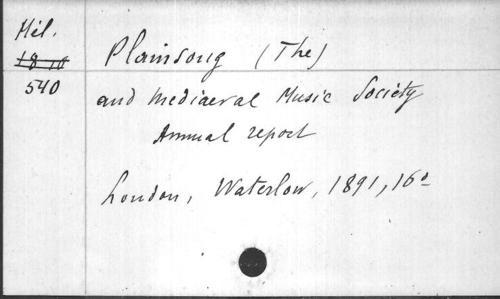 Hél.
18 10
540
Plainsong (The)
and mediaeval Music Society
Annual report
London, Waterlow, 1891, 16°